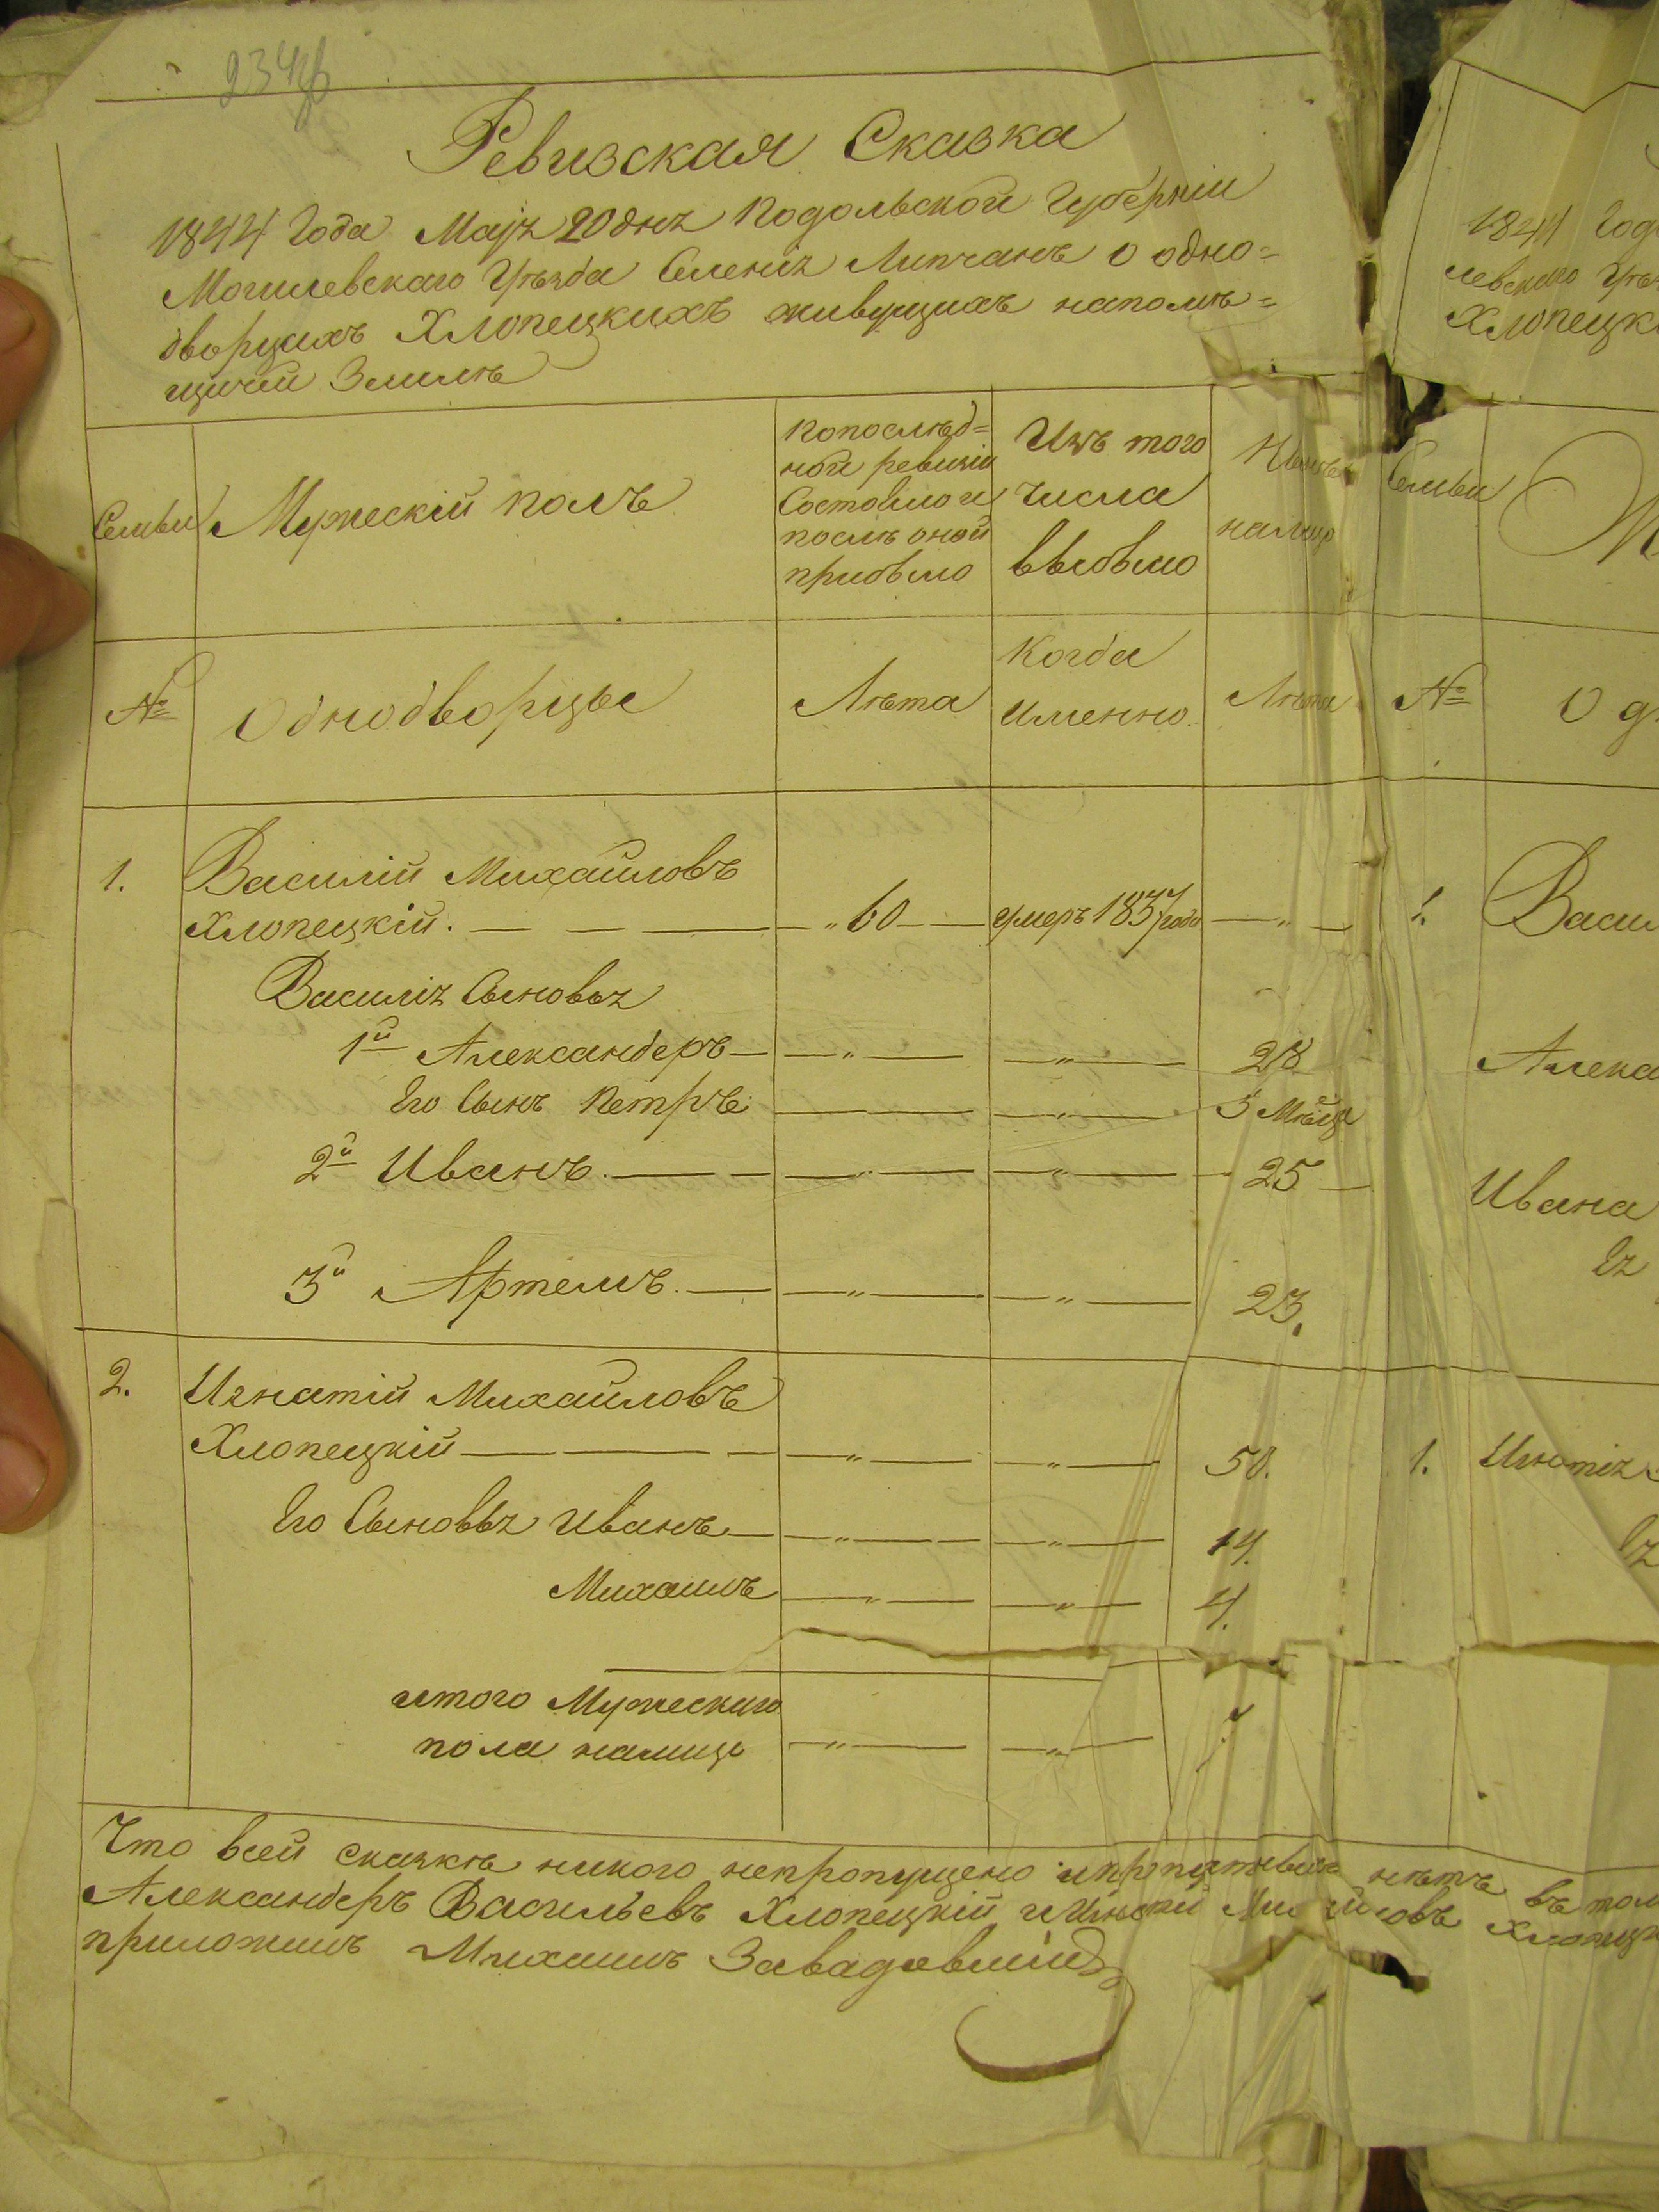 Ревизская Сказка
1844 Года Маія 20 дня Подольской Губерніи
Могилевскаго Уѣзда Селенія Липчанъ о одно=
дворцахъ Хлопецкихъ живущихъ напомѣ=
щичей Землѣ
Семьи
Мужескій полъ
Попослѣд=
ной ревизіи
Состояло и
послѣ оной
прибыло
Изъ того
числа
выбыло
Нынѣ
налицо
№
Однодворцы
Лѣта
Когда
именно.
Лѣта
1. Василій Михайловъ
Хлопецкій. — — — — „ 60 — — умеръ 1837 года — „ —
Василія Сыновья
1й Александеръ — — „ — — „ — 28
Его Сынъ Петръ — — — „ — 5 Мѣсяца
2й Иванъ. — — — „ — — „ — 25 —
3й Артемъ. — — „ — — „ — 23.
2. Игнатій Михайловъ
Хлопецкій — — — — „ — — „ — 50.
Его Сыновья Иванъ — — „ — — „ — 14.
Михаилъ — „ — — „ — 4.
итого Мужескаго
пола налицо — „ — — „ — 7
Что всей сказкѣ никого непропущено нѣтъ въ том
Александеръ Васильевъ Хлопецкій и Игнатій Михайловъ Хлопецк
приложилъ Михаилъ Завадовскій
1844 Год
левскаго Уѣз
Хлопецк
Семьи
М
№ Од
1. Васи
Алекса
Ивана
Ея
1. Игнатія
Ея